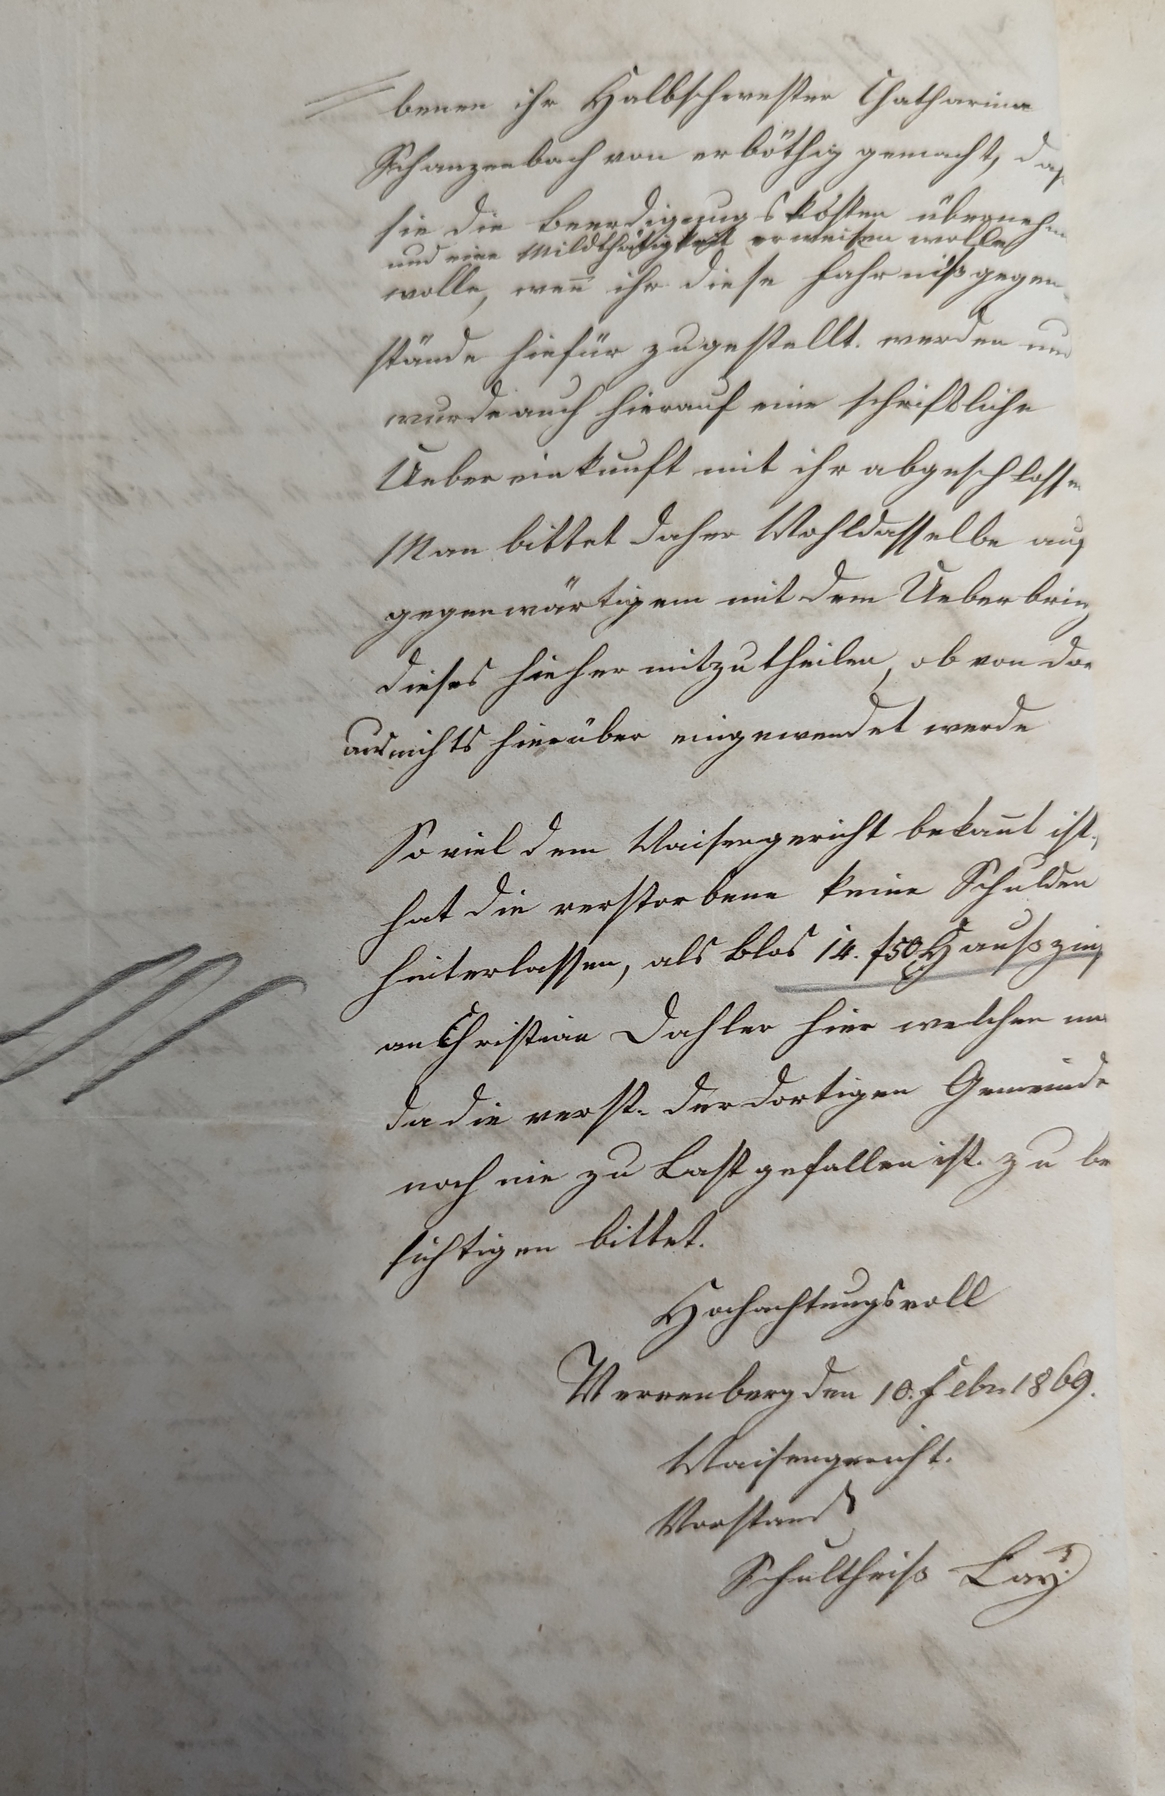 benen ihr Halbschwester Chatharina
Schanzenbach von erböthig gemacht, daß
sie die Beerdigungskosten übernehm
und eine Mildthätigkeit erweisen wolle
wolle, wen̄ ihr diese Fahrnißgegen
stände hiefür zugestellt. werden und
wurde auch hierauf eine schriftliche
Uebereinkunft mit ihr abgeschlosse
Man bittet daher Wohldasselbe auf
gegenwärtigem mit dem Ueberbring
dieses hieher mitzutheilen, ob von dor
aus nichts hierüber eingewendet werde
So viel dem Waisengericht bekan̄t ist,
hat die verstorbene keine Schulden
hinterlassen, als blos 14. f 50 Hauszins
an Christian Dahler hier welchen
da die verst. der dortigen Gemeinde
noch nie zu Last gefallen ist. zu be
sichtigen bittet.
Hochachtungsvoll
Verrenberg den 10. Febr. 1869.
Waisengericht.
Vorstand
Schultheiß Lay